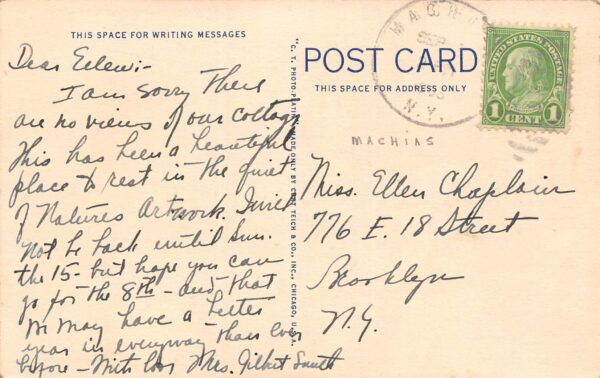 THIS SPACE FOR WRITING MESSAGES
Dear Ellen:-
I am sorry there
are no views of our cottage
This has been a beautiful
place to rest in the quiet
of Natures Artwork. I will
not be back until Sun.
the 15 - but hope you can
go for the 8th - and that
we may have a better
year in everyway than ever
before - With love Mrs. Gilbert Smith
"C. T. PHOTO-PLATIN" MADE ONLY BY CURT TEICH & CO., INC., CHICAGO, U.S.A.
POST CARD
THIS SPACE FOR ADDRESS ONLY
SEP
N.Y.
MACHIAS
UNITED STATES POSTAGE
FRANKLIN
1 CENT 1
Miss. Ellen Chaplain
776 E. 18 Street
Brooklyn
N.Y.